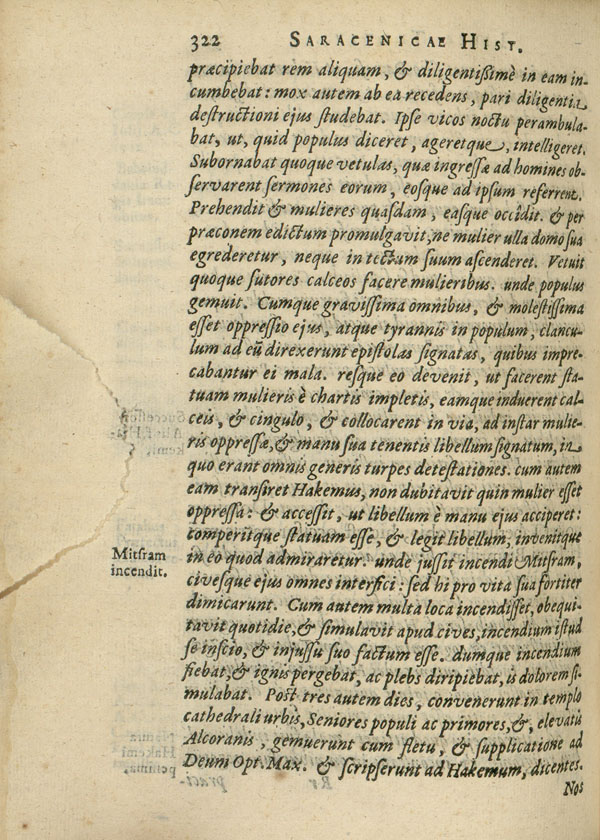 322 SARACENICAE HIST.
præcipiebat rem aliquam, & diligentißimè in eam in-
cumbebat: mox autem ab ea recedens, pari diligentia
destructioni ejus studebat. Ipse vicos noctu perambula-
bat, ut, quid populus diceret, ageretque, intelligeret.
Subornabat quoque vetulas, quæ ingressæ ad homines ob-
servarent sermones eorum, eosque ad ipsum referrent.
Prehendit & mulieres quasdam, easque occîdit. & per
præconem edictum promulgavit, ne mulier ulla domo sua
egrederetur, neque in tectum suum ascenderet. Vetuit
quoque sutores calceos facere mulieribus. unde populus
gemuit. Cumque gravissima omnibus, & molestissima
esset oppressio ejus, atque tyrannis in populum, clancu-
lum ad eũ direxerunt epistolas signatas, quibus impre-
cabantur ei mala. resque eo devenit, ut facerent sta-
tuam mulieris è chartis impletis, eamque induerent cal-
ceis, & cingulo, & collocarent in via, ad instar mulie-
ris oppressæ, & manu sua tenentis libellum signatum, in
quo erant omnis generis turpes detestationes. cum autem
eam transiret Hakemus, non dubitavit quin mulier esset
oppressa: & accessit, ut libellum è manu ejus acciperet:
comperitque statuam esse, & legit libellum, invenitque
Mitsram
incendit.
in eo quod admiraretur. unde jussit incendi Mitsram,
civesque ejus omnes interfici: sed hi pro vita sua fortiter
dimicarunt. Cum autem multa loca incendisset, obequi-
tavit quotidie, & simulavit apud cives, incendium istud
se inscio, & injussu suo factum esse. dumque incendium
fiebat, & ignis pergebat, ac plebs diripiebat, is dolorem si-
mulabat. Post tres autem dies, convenerunt in templo
cathedrali urbis, Seniores populi ac primores, &, elevatis
Alcoranis, gemuerunt cum fletu, & supplicatione ad
Deum Opt. Max. & scripserunt ad Hakemum, dicentes.
Nos